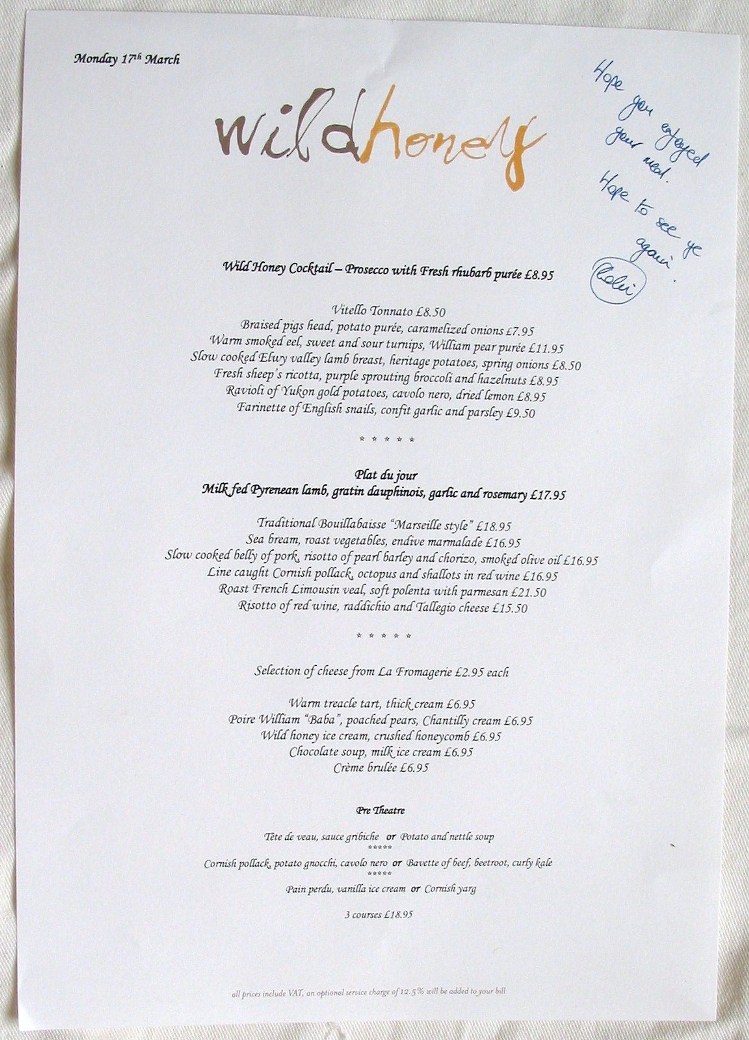 Monday 17th March
wildhoney
Hope you enjoyed
your meal.
Hope to see ye
again.
Wild Honey Cocktail – Prosecco with Fresh rhubarb purée £8.95
Vitello Tonnato £8.50
Braised pigs head, potato purée, caramelized onions £7.95
Warm smoked eel, sweet and sour turnips, William pear purée £11.95
Slow cooked Elwy valley lamb breast, heritage potatoes, spring onions £8.50
Fresh sheep's ricotta, purple sprouting broccoli and hazelnuts £8.95
Ravioli of Yukon gold potatoes, cavolo nero, dried lemon £8.95
Farinette of English snails, confit garlic and parsley £9.50
* * * * *
Plat du jour
Milk fed Pyrenean lamb, gratin dauphinois, garlic and rosemary £17.95
Traditional Bouillabaisse "Marseille style" £18.95
Sea bream, roast vegetables, endive marmalade £16.95
Slow cooked belly of pork, risotto of pearl barley and chorizo, smoked olive oil £16.95
Line caught Cornish pollack, octopus and shallots in red wine £16.95
Roast French Limousin veal, soft polenta with parmesan £21.50
Risotto of red wine, raddichio and Tallegio cheese £15.50
* * * * *
Selection of cheese from La Fromagerie £2.95 each
Warm treacle tart, thick cream £6.95
Poire William "Baba", poached pears, Chantilly cream £6.95
Wild honey ice cream, crushed honeycomb £6.95
Chocolate soup, milk ice cream £6.95
Crème brulée £6.95
Pre Theatre
Tête de veau, sauce gribiche or Potato and nettle soup
*****
Cornish pollack, potato gnocchi, cavolo nero or Bavette of beef, beetroot, curly kale
*****
Pain perdu, vanilla ice cream or Cornish yarg
3 courses £18.95
all prices include VAT, an optional service charge of 12.5% will be added to your bill